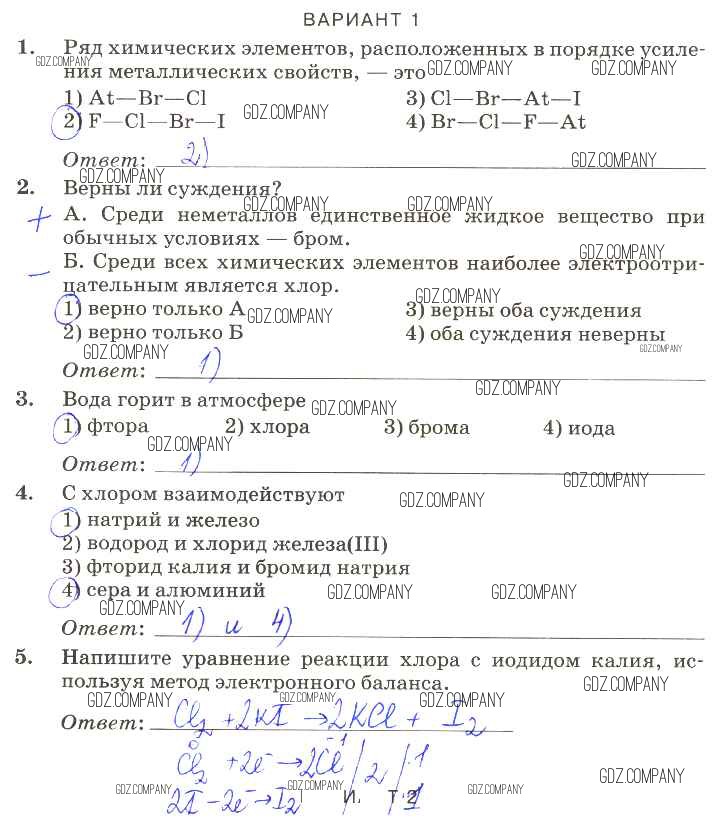 ВАРИАНТ 1
1. Ряд химических элементов, расположенных в порядке усиле-
GDZ.COMPANY
ния металлических свойств, — это
GDZ.COMPANY GDZ.COMPANY
1) At—Br—Cl 3) Cl—Br—At—I
GDZ.COMPANY
2) F—Cl—Br—I 4) Br—Cl—F—At
Ответ: 2)
GDZ.COMPANY
GDZ.COMPANY
2. Верны ли суждения?
GDZ.COMPANY GDZ.COMPANY
+ А. Среди неметаллов единственное жидкое вещество при
обычных условиях — бром.
GDZ.COMPANY
– Б. Среди всех химических элементов наиболее электроотри-
цательным является хлор.
GDZ.COMPANY
1) верно только А 3) верны оба суждения
GDZ.COMPANY
2) верно только Б 4) оба суждения неверны
GDZ.COMPANY GDZ.COMPANY
Ответ: 1)
GDZ.COMPANY
3. Вода горит в атмосфере
GDZ.COMPANY
1) фтора 2) хлора 3) брома 4) иода
GDZ.COMPANY
Ответ: 1)
GDZ.COMPANY
4. С хлором взаимодействуют
GDZ.COMPANY
1) натрий и железо
2) водород и хлорид железа(III)
3) фторид калия и бромид натрия
4) сера и алюминий
GDZ.COMPANY GDZ.COMPANY
GDZ.COMPANY
Ответ: 1) и 4)
5. Напишите уравнение реакции хлора с иодидом калия, ис-
пользуя метод электронного баланса.
GDZ.COMPANY
GDZ.COMPANY GDZ.COMPANY GDZ.COMPANY
Ответ: Cl2 + 2KI → 2KCl + I2
Cl2 0 + 2e- → 2Cl -1 / 2 / 1
GDZ.COMPANY
GDZ.COMPANY GDZ.COMPANY GDZ.COMPANY
2I - 2e- → I2